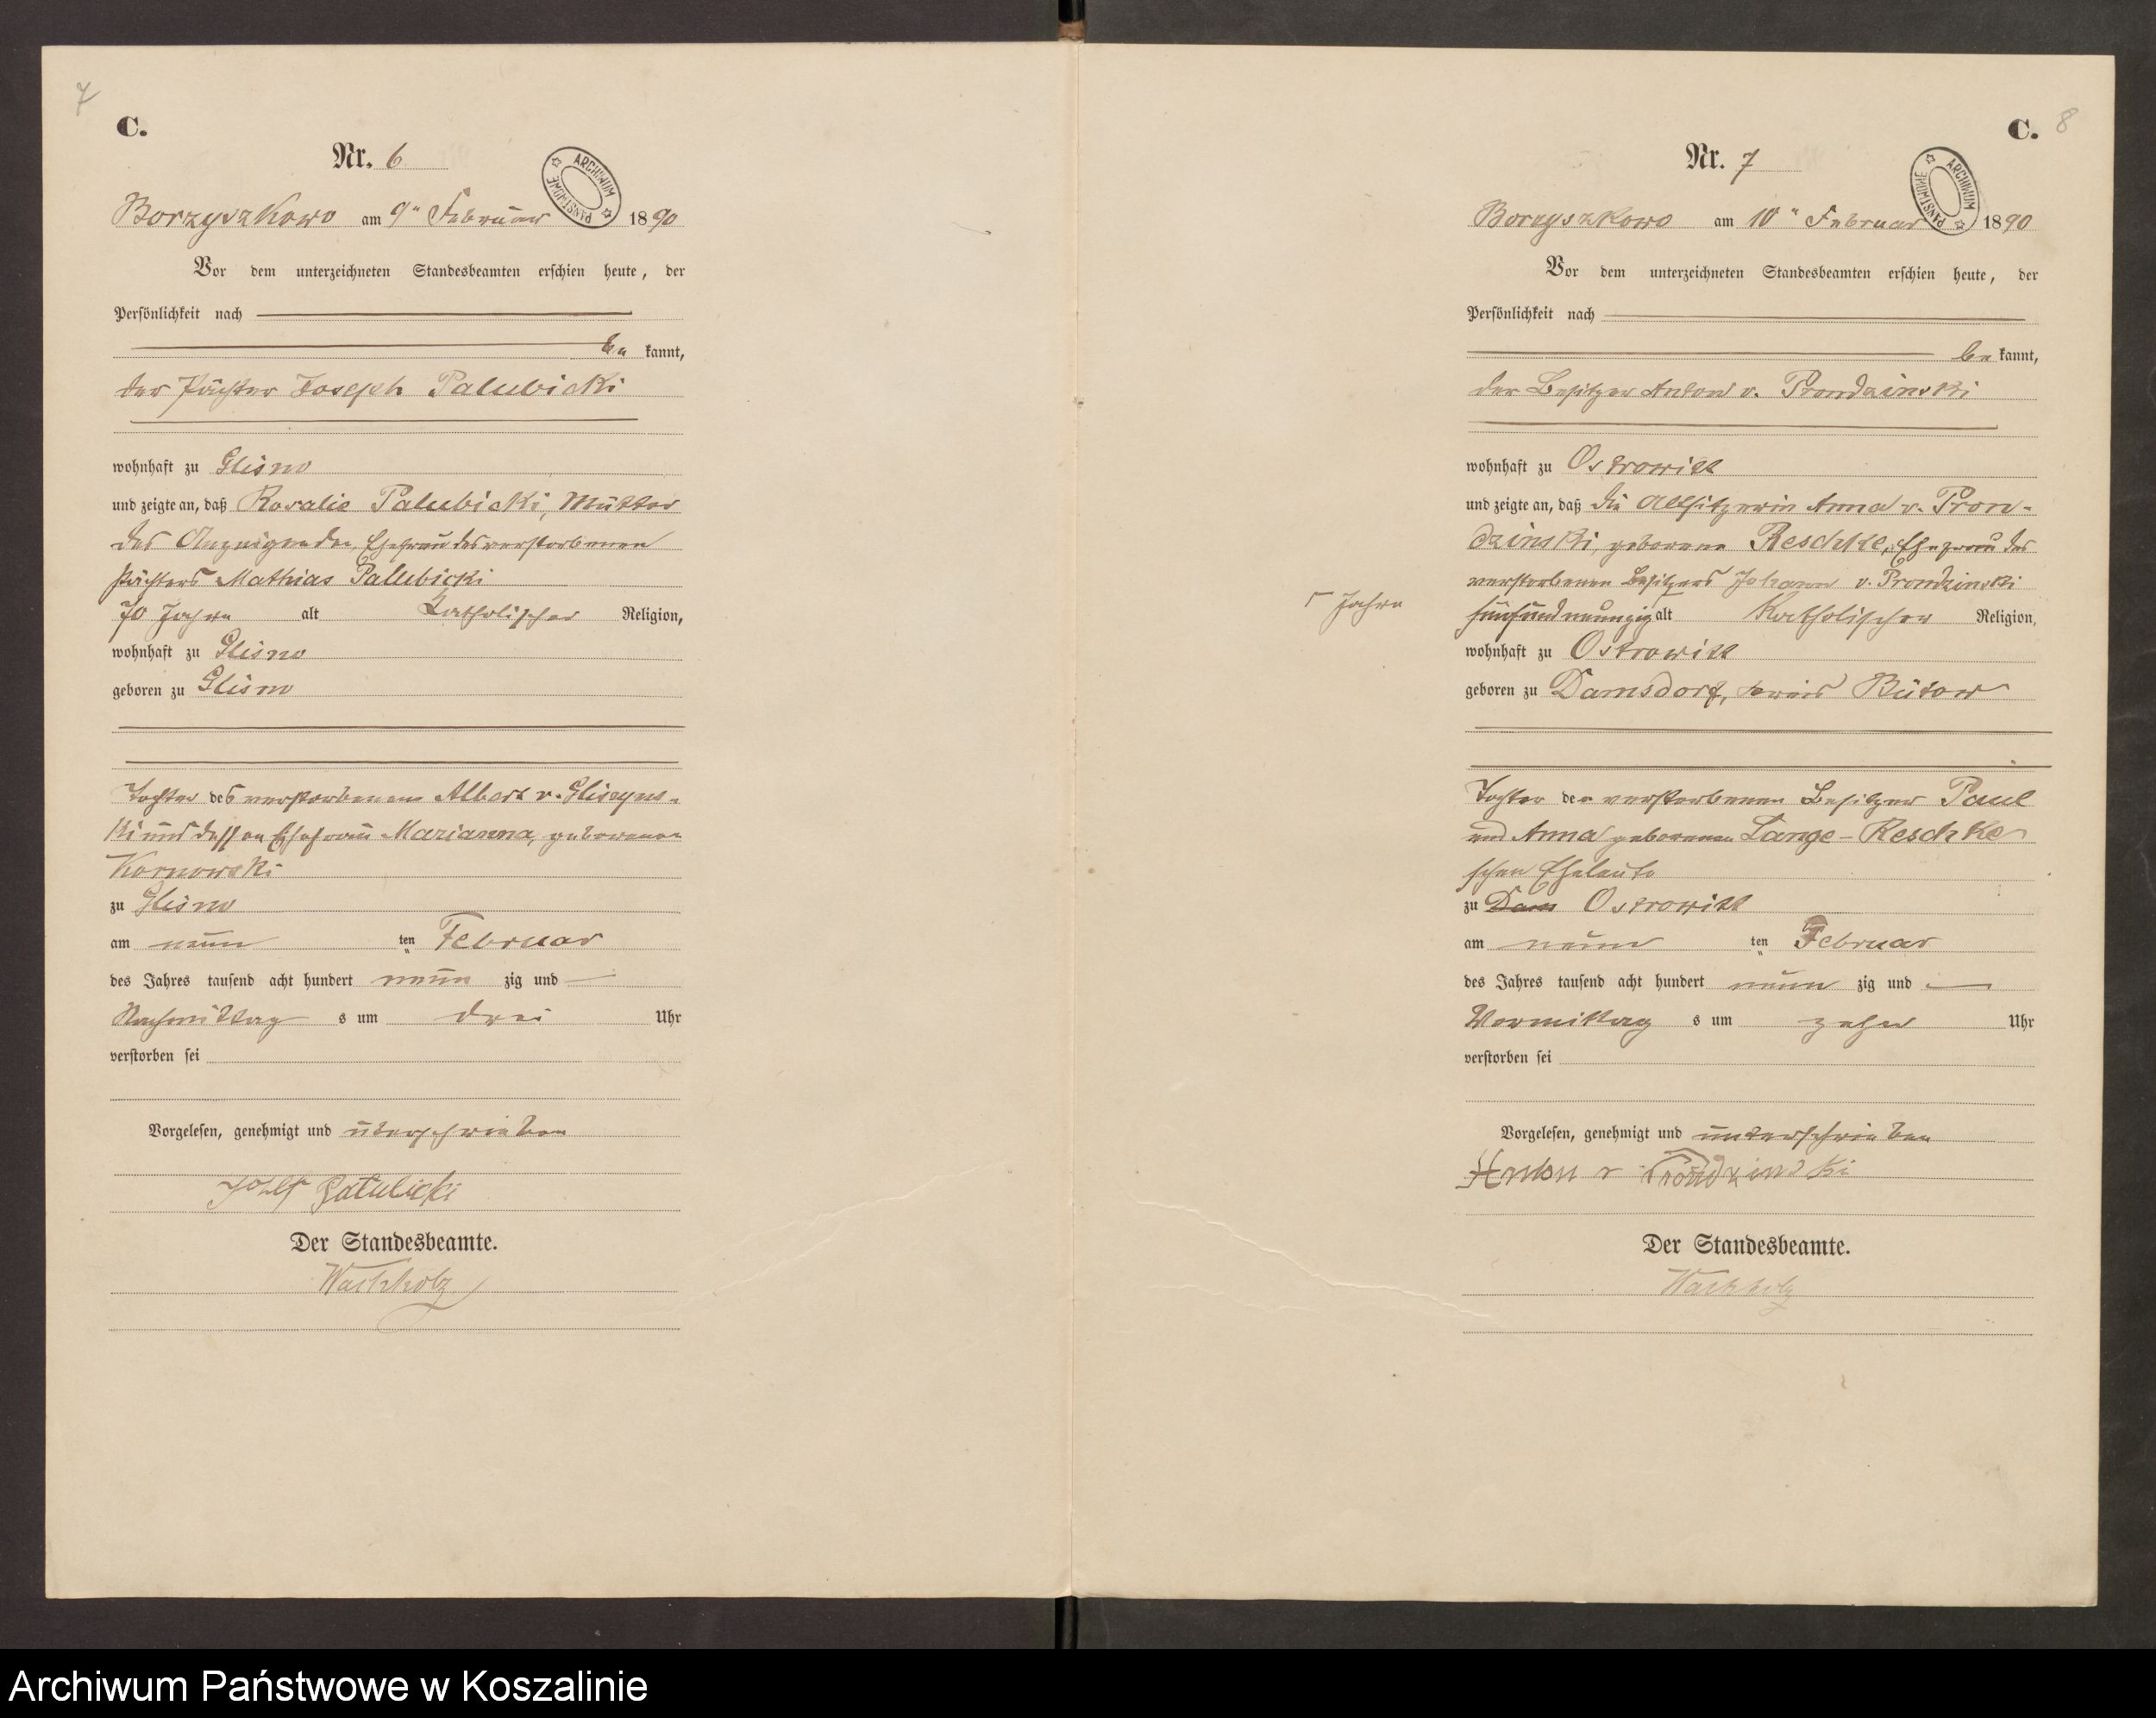 7
C.
Nr. 6
ARCHIWUM PAŃSTWOWE
Borzyszkowo am 9" Februar 1890
Vor dem unterzeichneten Standesbeamten erschien heute, der
Persönlichkeit nach
be kannt,
der Pächter Joseph Palubicki
wohnhaft zu Glisno
und zeigte an, daß Rosalie Palubicki, Mutter
des Anzeigenden, Ehefrau des verstorbenen
Pächters Mathias Palubicki
70 Jahre alt katholischer Religion,
wohnhaft zu Glisno
geboren zu Glisno
Tochter des verstorbenen Albert v. Glisczyns-
ki und dessen Ehefrau Marianna, geborenen
Kornowski
zu Glisno
am neun ten Februar
des Jahres tausend acht hundert neun zig und
Nachmittag s um drei Uhr
verstorben sei
Vorgelesen, genehmigt und unterschrieben
Josef Palubicki
Der Standesbeamte.
Wachholz
8
C.
Nr. 7
ARCHIWUM PAŃSTWOWE
Borzyszkowo am 10" Februar 1890
Vor dem unterzeichneten Standesbeamten erschien heute, der
Persönlichkeit nach
be kannt,
der Besitzer Anton v. Prondzinski
wohnhaft zu Ostrowitt
und zeigte an, daß die Altsitzerin Anna v. Pron-
dzinski, geborene Reschke, Ehefrau des
verstorbenen Besitzers Johann v. Prondzinski
Jahre
fünfundneunzig alt Katholischer Religion,
wohnhaft zu Ostrowitt
geboren zu Damsdorf, Kreis Bütow
Tochter der verstorbenen Besitzer Paul
und Anna geborenen Lange-Reschke
schen Eheleute
zu Dams Ostrowitt
am neun ten Februar
des Jahres tausend acht hundert neun zig und
Vormittag s um zehn Uhr
verstorben sei
Vorgelesen, genehmigt und unterschrieben
Anton v Prondzinski
Der Standesbeamte.
Wachholz
Archiwum Państwowe w Koszalinie